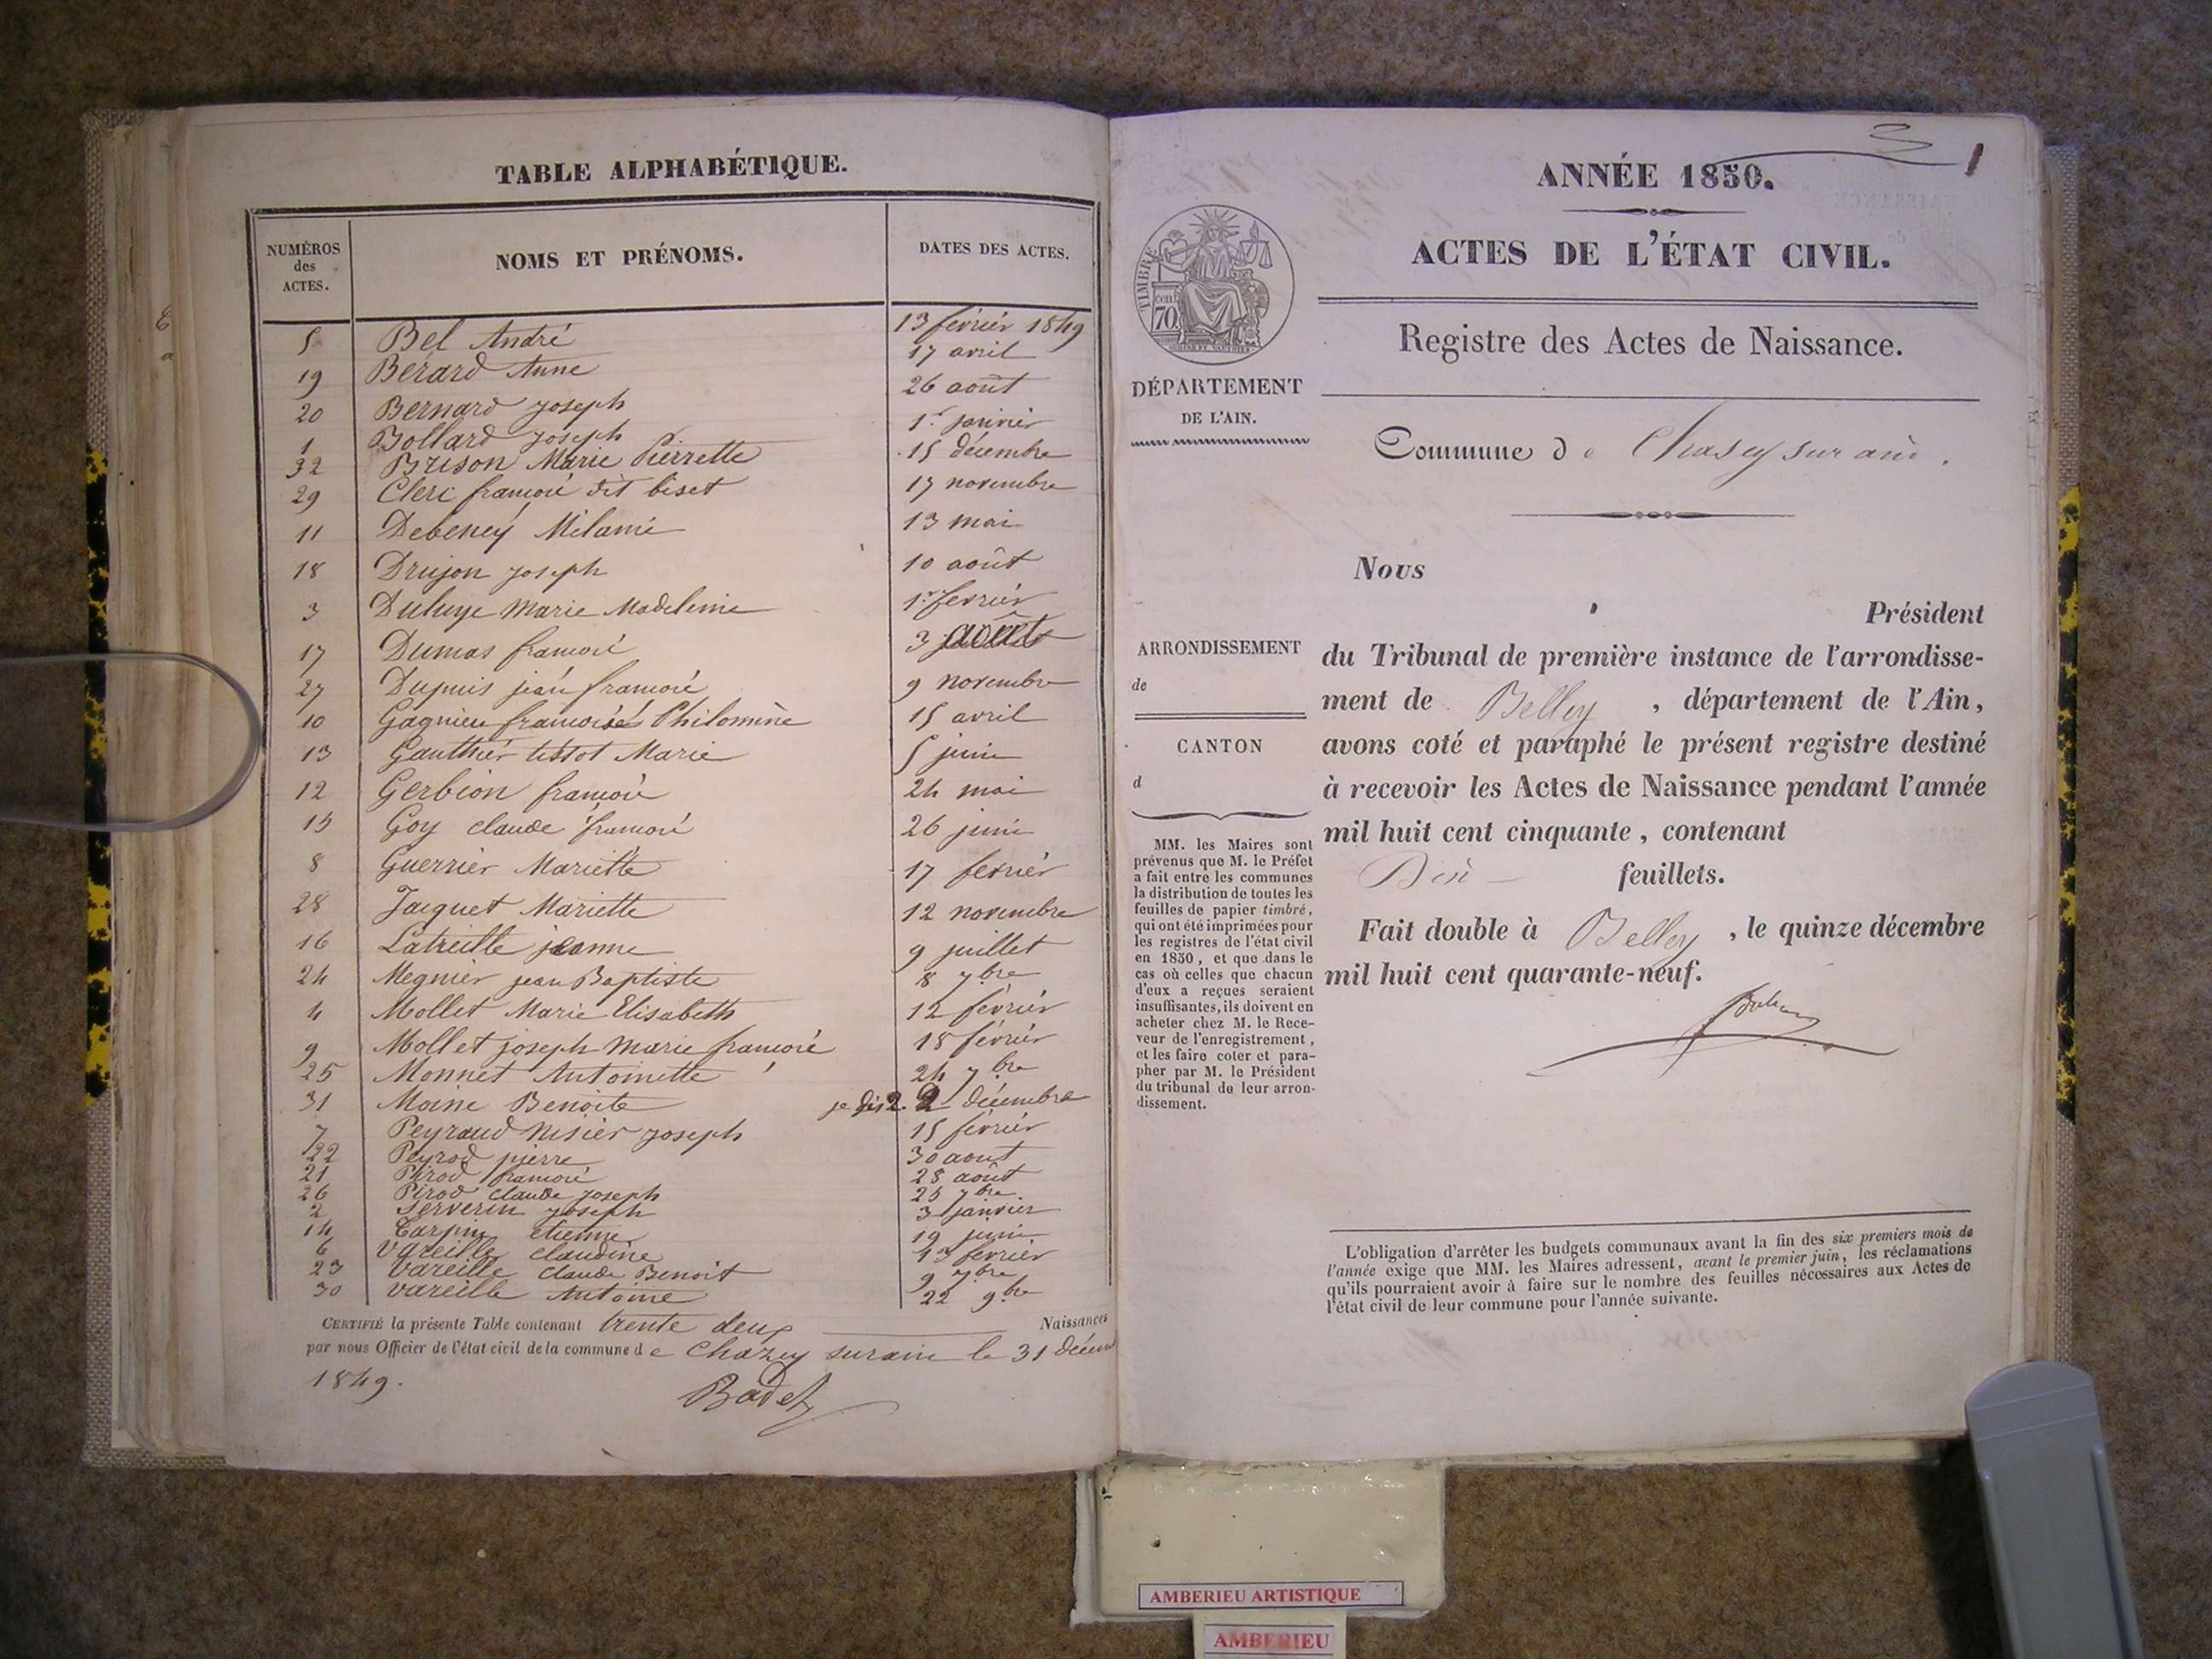 TABLE ALPHABÉTIQUE.
NUMÉROS des ACTES. NOMS ET PRÉNOMS. DATES DES ACTES.
5 Bel André 13 fevrier 1849
19 Bérard Anne 17 avril
20 Bernard joseph 26 août
1 Bollard joseph 1.r janvier
32 Brison Marie Pierrette 15 décembre
29 Clerc françois dit biset 17 novembre
11 Debeney Mélanie 13 mai
18 Drujon joseph 10 août
3 Duluye Marie Madeleine 1.r fevrier
17 Dumas françois 3 août
27 Dupuis jean françois 9 novembre
10 Gagnieu françoise Philomène 15 avril
13 Gauthier tistot Marie 5 juin
12 Gerbion françois 24 mai
15 Goy claude françois 26 juin
8 Guerrier Mariette 17 fevrier
28 Jacquet Mariette 12 novembre
16 Latreille jeanne 9 juillet
24 Megnier jean Baptiste 8 7.bre
4 Mollet Marie Elisabeth 12 février
9 Mollet joseph Marie françois 18 février
25 Monnet Antoinette 24 7.bre
31 Moine Benoite je dis 2. 2 décembre
7 Peyraud Nisier joseph 15 février
22 Peyrod pierre 30 aout
21 Pirod françois 28 août
26 Pirod claude joseph 25 7.bre
2 Serverin joseph 3 janvier
14 Tarpin etienne 19 juin
6 Vareille claudine 13 fevrier
23 Vareille claude Benoit 9 7.bre
30 Vareille Antoine 22 9.bre
CERTIFIÉ la présente Table contenant trente deux Naissances
par nous Officier de l'état civil de la commune de Chazey sur ain le 31 décem
1849.
Badet
1
ANNÉE 1850.
ACTES DE L'ÉTAT CIVIL.
TIMBRE
cen.
70
Registre des Actes de Naissance.
DÉPARTEMENT
DE L'AIN.
Commune de Chasey sur ain.
Nous
Président
ARRONDISSEMENT
de
CANTON
d
du Tribunal de première instance de l'arrondisse-
ment de Belley, département de l'Ain,
avons coté et paraphé le présent registre destiné
à recevoir les Actes de Naissance pendant l'année
mil huit cent cinquante, contenant
Dix feuillets.
Fait double à Belley, le quinze décembre
mil huit cent quarante-neuf.
MM. les Maires sont
prévenus que M. le Préfet
a fait entre les communes
la distribution de toutes les
feuilles de papier timbré,
qui ont été imprimées pour
les registres de l'état civil
en 1850, et que dans le
cas où celles que chacun
d'eux a reçues seraient
insuffisantes, ils doivent en
acheter chez M. le Rece-
veur de l'enregistrement,
et les faire coter et para-
pher par M. le Président
du tribunal de leur arron-
dissement.
L'obligation d'arrêter les budgets communaux avant la fin des six premiers mois de
l'année exige que MM. les Maires adressent, avant le premier juin, les réclamations
qu'ils pourraient avoir à faire sur le nombre des feuilles nécessaires aux Actes de
l'état civil de leur commune pour l'année suivante.
AMBERIEU ARTISTIQUE
AMBERIEU